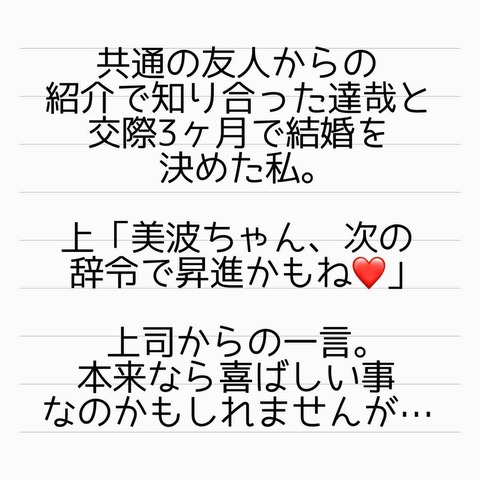 共通の友人からの
紹介で知り合った達哉と
交際3ヶ月で結婚を
決めた私。
上「美波ちゃん、次の
辞令で昇進かもね❤️」
上司からの一言。
本来なら喜ばしい事
なのかもしれませんが…